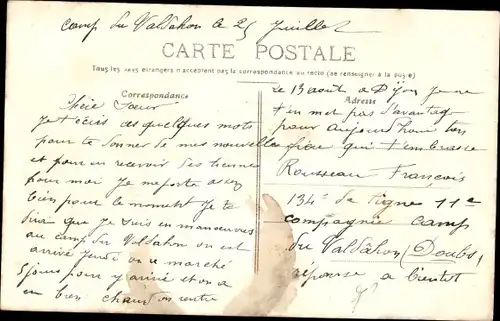 Camp du Valdahon le 25 Juillet
CARTE POSTALE
Tous les pays étrangers n'acceptent pas la correspondance au recto (se renseigner à la poste)
Correspondance
Adresse
Chère Sœur
Je t'écris ces quelques mots
pour te donner de mes nouvelles
et pour en recevoir des tiennes
pour moi Je me porte assez
bien pour le moment Je te
dirai que Je suis en manœuvres
au camp du Valdahon on est
arrivé Jeudi on a marché
5 Jours pour y arrivé et on a
eu bien chaud on rentre
le 13 août a Dijon Je ne
t'en met pas d'avantage
pour aujourd'hour ton
frère qui t'embrasse
Rousseau François
134e de ligne 11e
compagnie camp
du Valdâhon (Doubs)
réponse a bientot